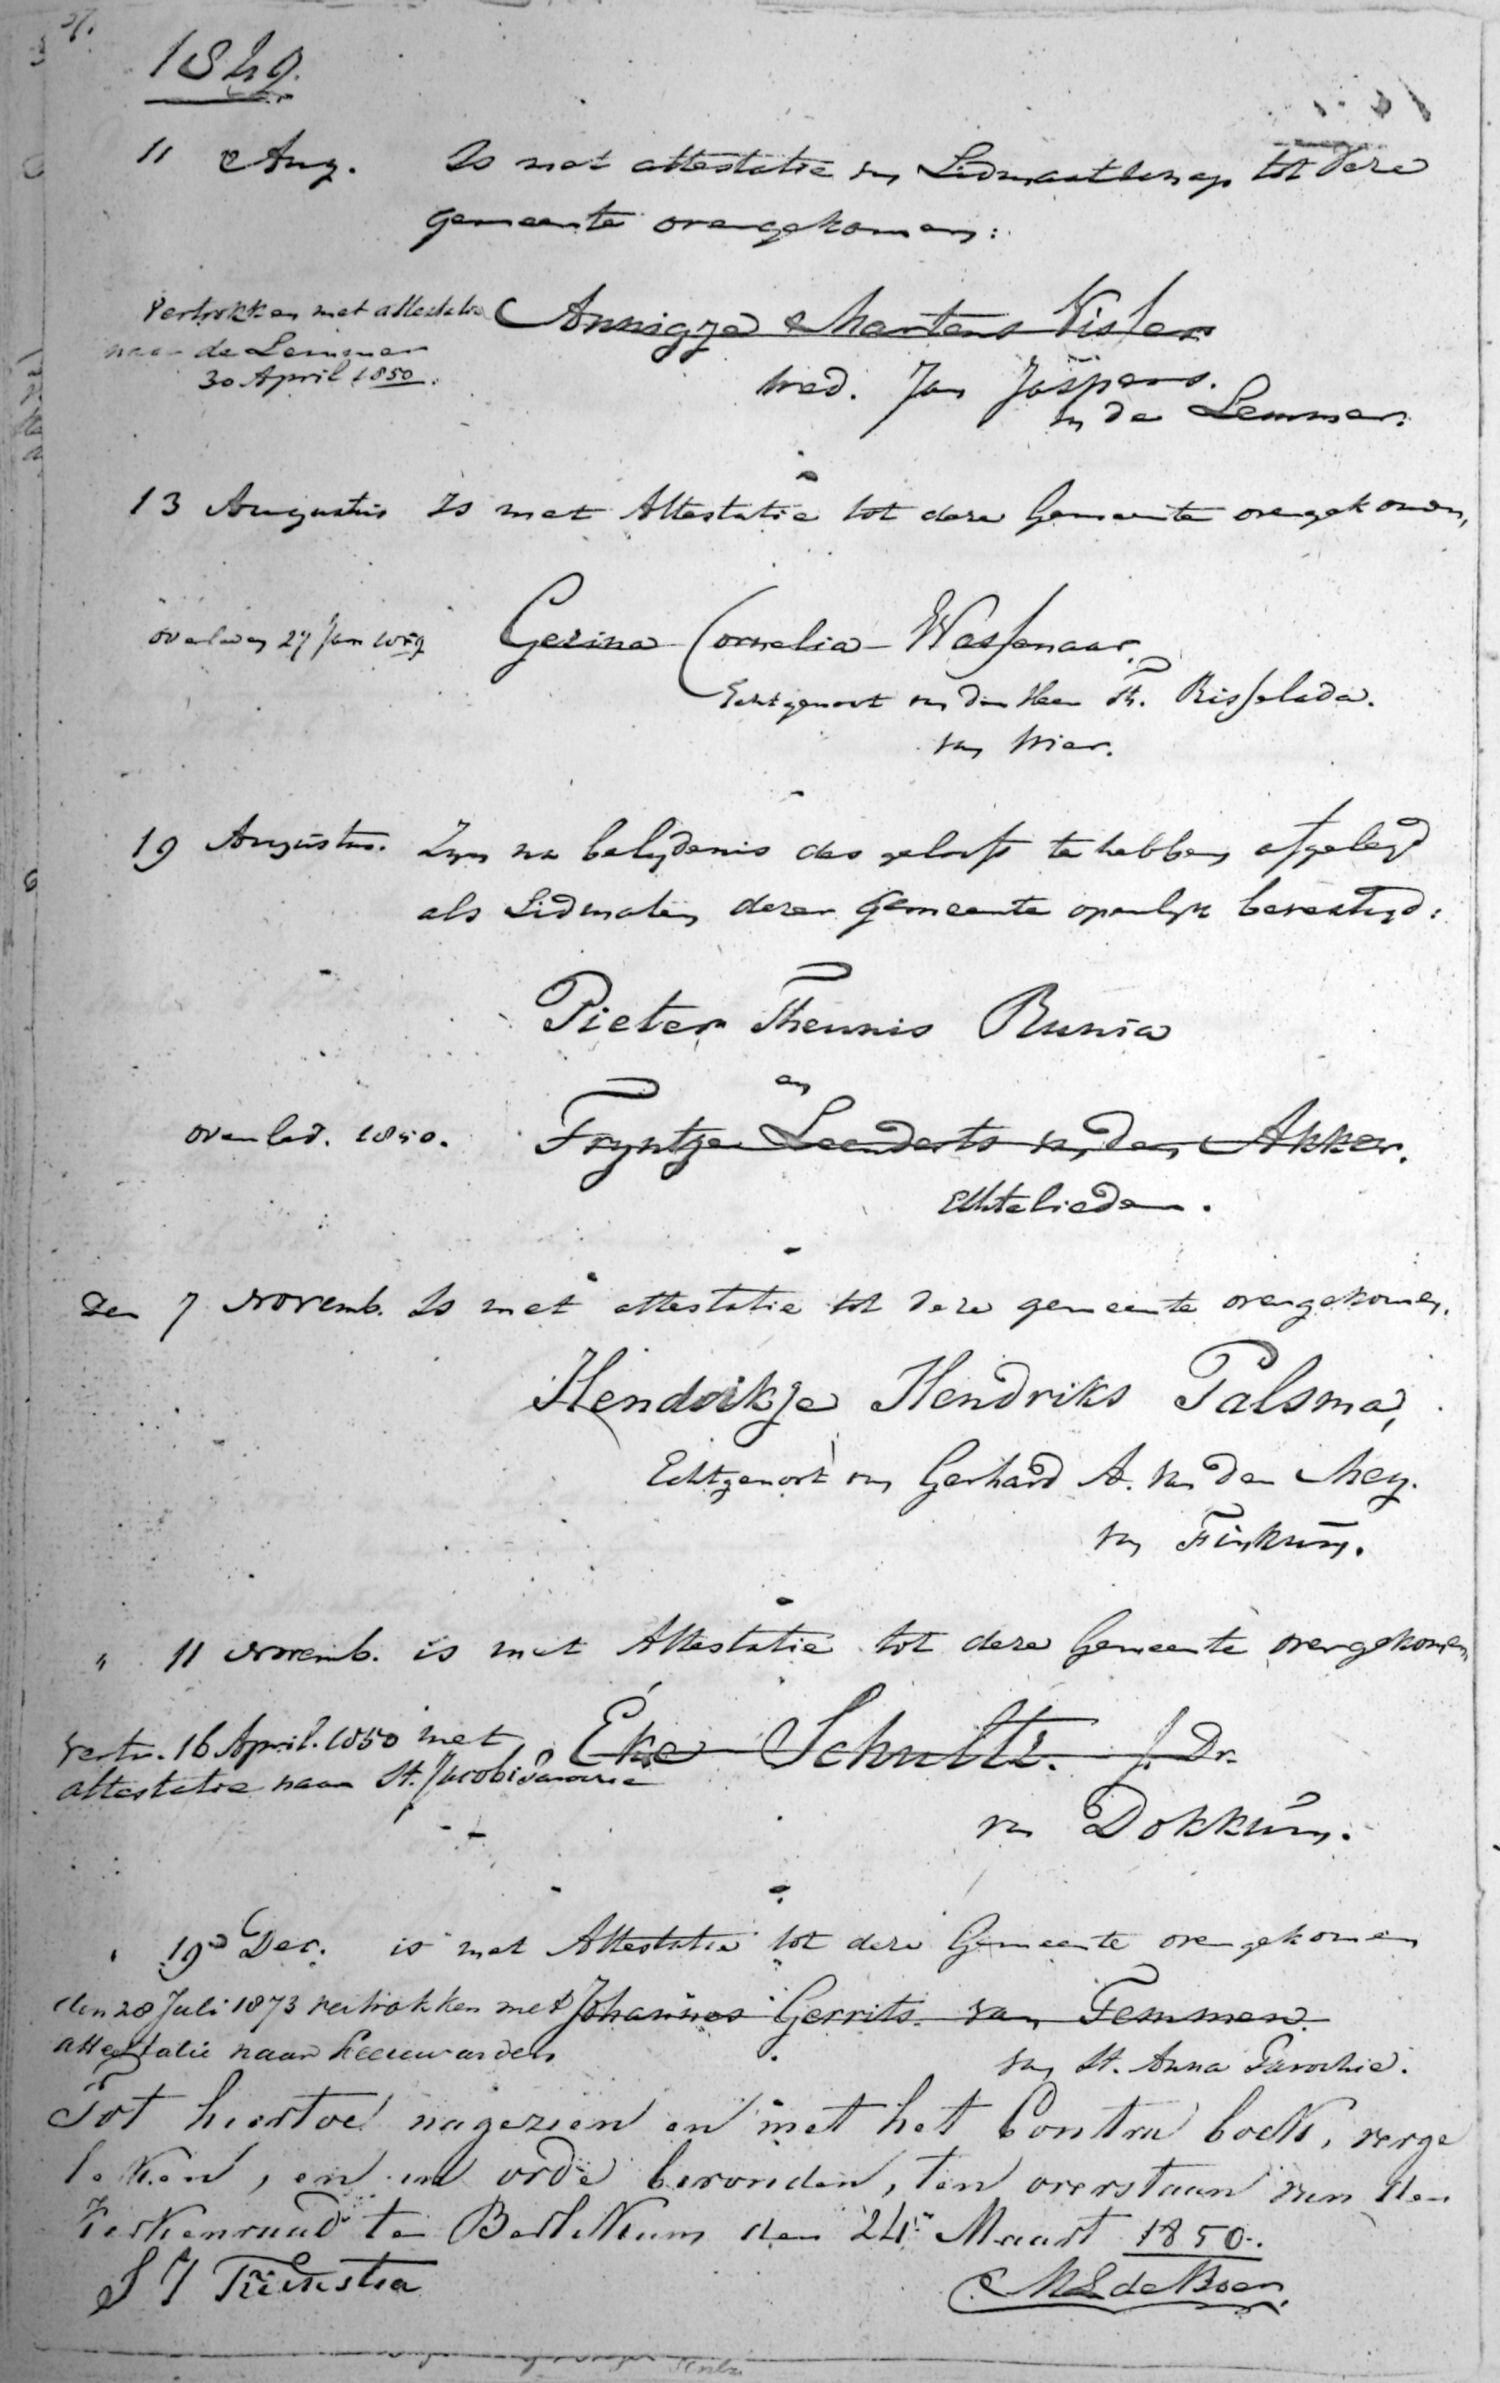 1849.
11 Aug. Is met attestatie van Lidmaatschap tot deze
gemeente overgekomen:
Vertrokken met attestatie Annigje Martens Visser
naar de Lemmer
30 April 1850.
wed. Jan Jaspers.
in de Lemmer.
13 Augustus Is met Attestatie tot deze Gemeente overgekomen,
overleden 27 Jan Gezina Cornelia Wassenaar
Echtgenoot van den Heer Th. Risselada.
van Wier.
19 Augustus. Zyn na belydenis des geloofs te hebben afgelegd
als Lidmaten dezer Gemeente openlyk bevestigd:
Pieter Theunis Runia
en
overled. 1850. Tryntje Leenderts van den Akker.
Echtelieden.
Den 7 Novemb. Is met attestatie tot deze gemeente overgekomen.
Hendrikje Hendriks Palsma,
Echtgenoot van Gerhard A. van der Mey.
van Finkum.
" 11 Novemb. is met Attestatie tot deze Gemeente overgekomen
vertr. 16 April. 1850 met Eke Schultz. J. Dr.
attestatie naar St. Jacobi Parochie
van Dokkum.
" 19d Dec. is met Attestatie tot deze Gemeente overgekomen
den 28 Juli 1873 vertrokken met Johannes Gerrits van Temmen
attestatie naar Leeuwarden
van St. Anna Parochie.
Tot hiertoe nagezien en met het Contra boek, verge
leken, en in orde bevonden, ten overstaan van den
Kerkenraad te Berlikum den 24n Maart 1850.
S J Tuinstra M L de Boer